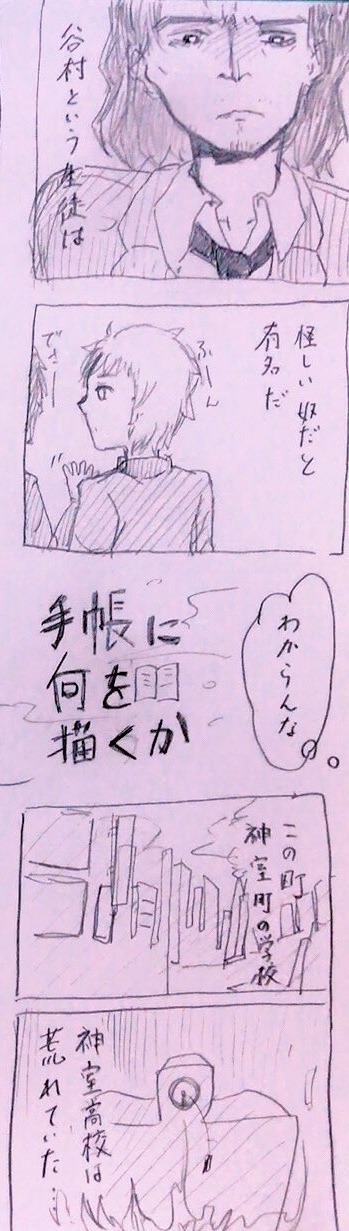 谷村という生徒は
怪しい奴だと
有名だ
ふーん
でさー
わからんな
手帳に
何を
描くか
この町
神室町の学校
神室高校は
荒れていた…